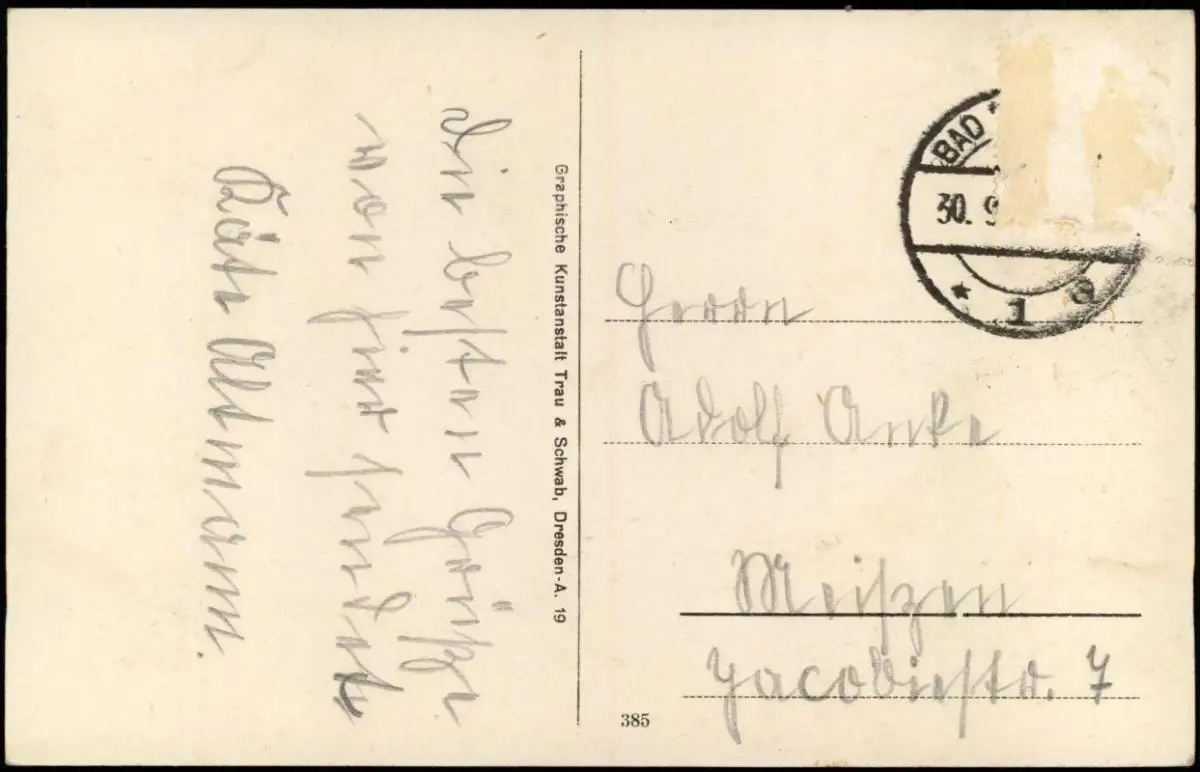 Die besten Grüße
von hier sendet
Käte Altmann.
Graphische Kunstanstalt Trau & Schwab, Dresden-A. 19
BAD
30. 9
* 1 a
Herrn
Adolf Anke
Meißen
Jacobiestr. 7
385